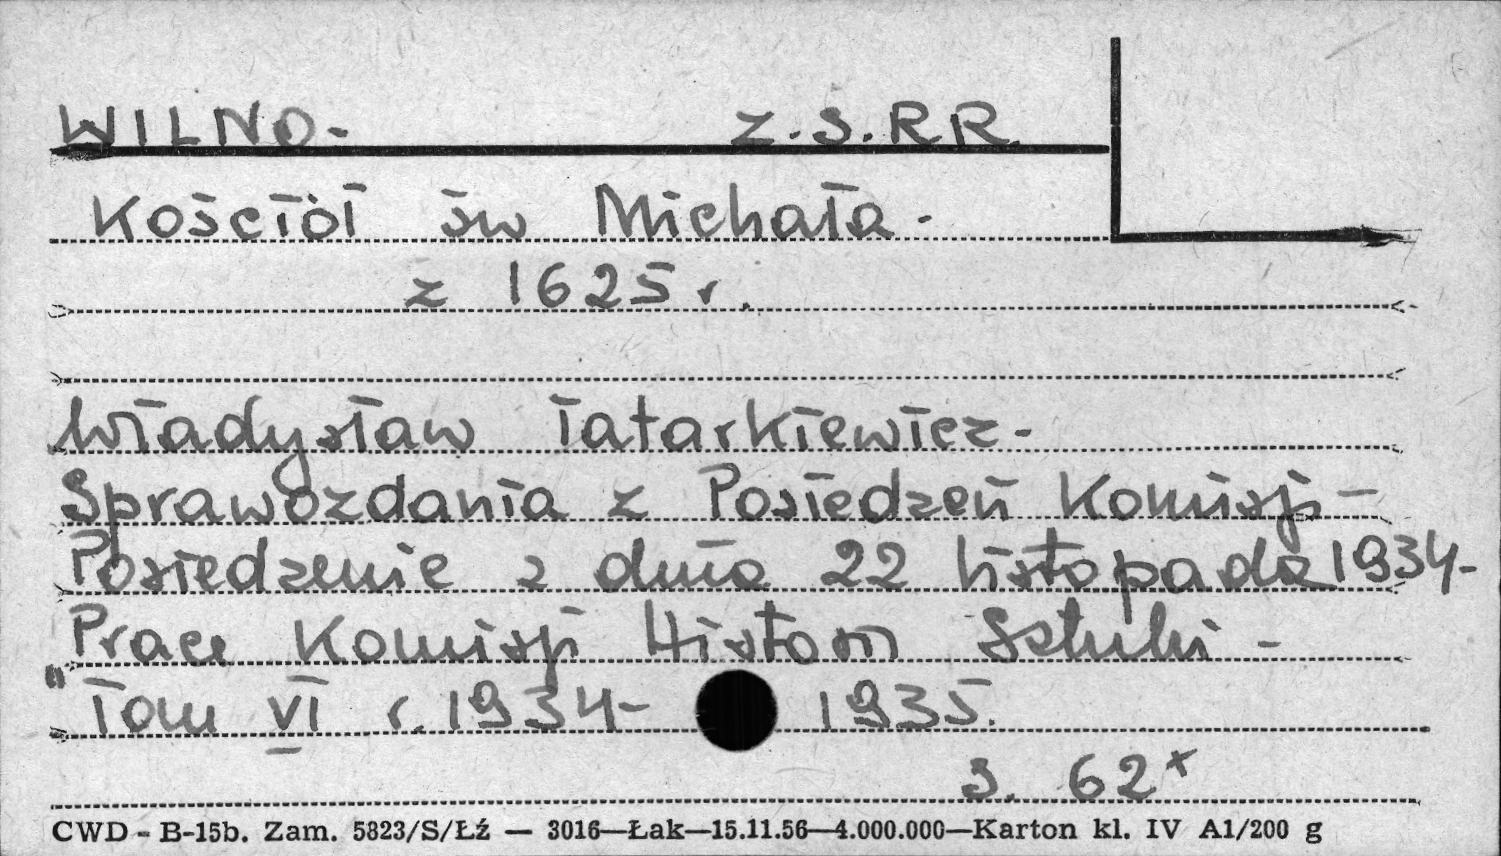 WILNO- Z.S.RR.
Kościół św Michała -
z 1625 r.
Władysław Tatarkiewicz -
Sprawozdania z Posiedzeń Komisji -
Posiedzenie z dnia 22 listopada 1934 -
Prace Komisji Histori Sztuki -
Tom VI r. 1934 - 1935.
s. 62 x
CWD - B-15b. Zam. 5823/S/Łź — 3016—Łak—15.11.56—4.000.000—Karton kl. IV A1/200 g